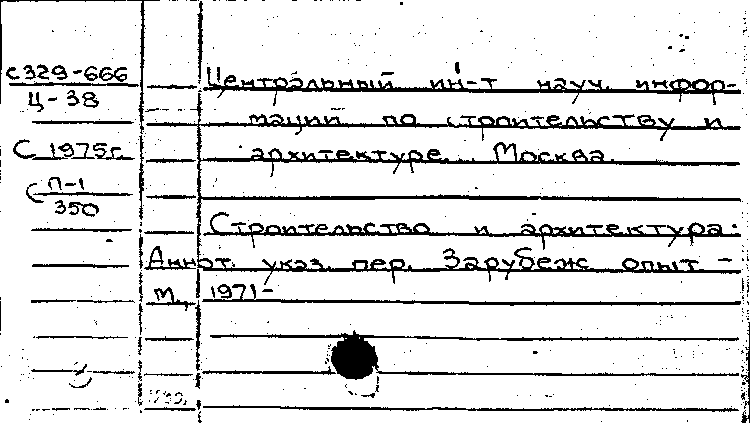 с329-666
Ц-38
С 1975г.
С П-1
350
Центральный ин-т науч. инфор-
маций по строительству и
архитектуре. Москва.
Строительство и архитектура:
Аннот. указ. пер. Зарубеж опыт -
М., 1971-
3